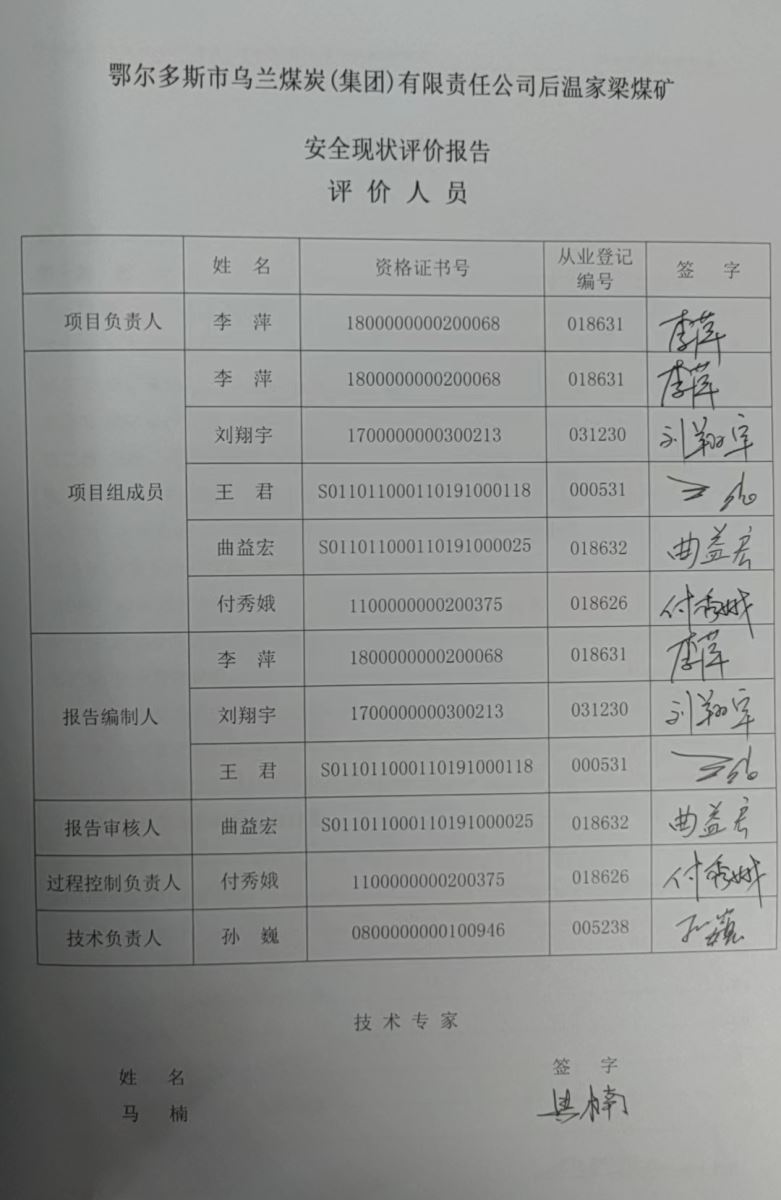 鄂尔多斯市乌兰煤炭(集团)有限责任公司后温家梁煤矿
安全现状评价报告
评价人员
姓 名 资格证书号 从业登记编号 签 字
项目负责人 李 萍 1800000000200068 018631 李萍
项目组成员 李 萍 1800000000200068 018631 李萍
刘翔宇 1700000000300213 031230 刘翔宇
王 君 S011011000110191000118 000531 王君
曲益宏 S011011000110191000025 018632 曲益宏
付秀娥 1100000000200375 018626 付秀娥
报告编制人 李 萍 1800000000200068 018631 李萍
刘翔宇 1700000000300213 031230 刘翔宇
王 君 S011011000110191000118 000531 王君
报告审核人 曲益宏 S011011000110191000025 018632 曲益宏
过程控制负责人 付秀娥 1100000000200375 018626 付秀娥
技术负责人 孙 巍 0800000000100946 005238 孙巍
技术专家
姓 名 签 字
马 楠 马楠